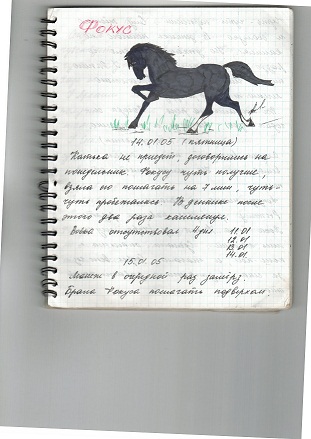 Фокус
14.01.05 (пятница)
Катька не приедет, договорились на
понедельник. Фокусу чуть получше,
взяла его пошагать на 7 мин, чуть-
чуть пробежалась. В деннике после
этого два раза кашлянул.
Вовка отсутствовал 4 дня 11.01
12.01
13.01
14.01
15.01.05
Манеж в очередной раз замёрз.
Брала Фокуса пошагать под верхом.